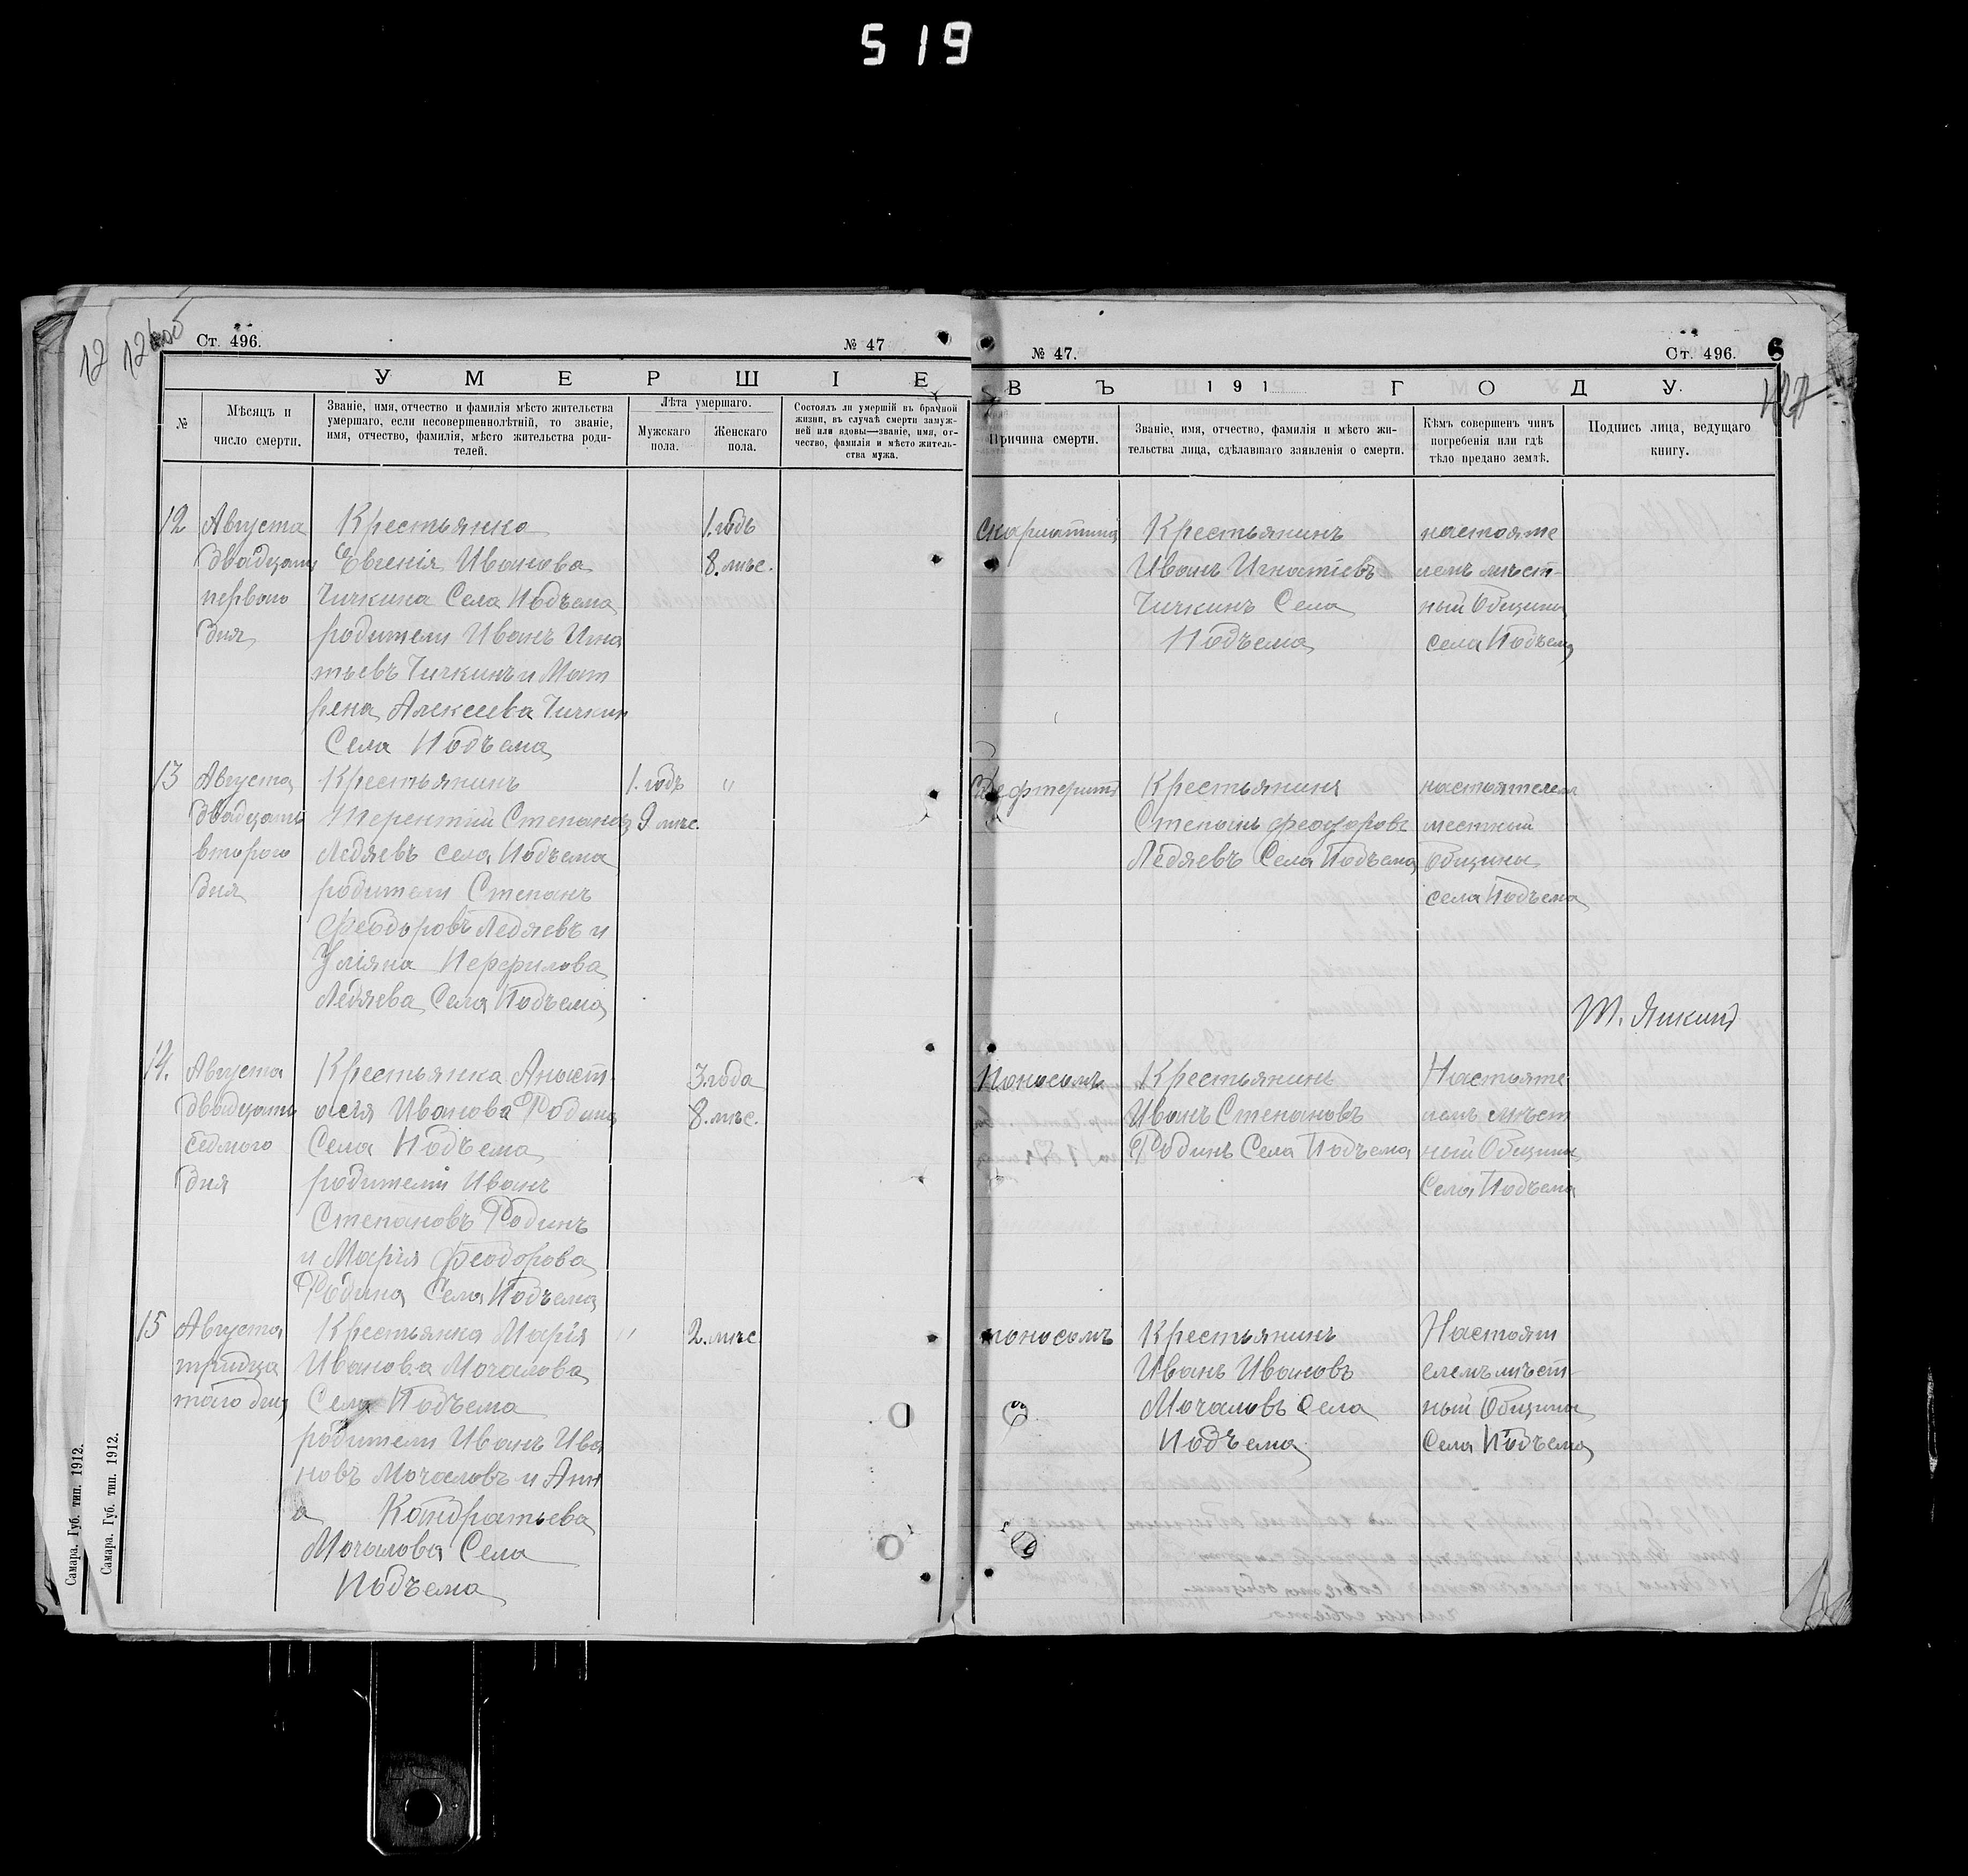 519
12
12
Ст. 496.
№ 47
У М Е Р Ш I Е
№
Мѣсяцъ и
число смерти.
Званіе, имя, отчество и фамилія мѣсто жительства
умершаго, если несовершеннолѣтній, то званіе,
имя, отчество, фамилія, мѣсто жительства роди-
телей.
Лѣта умершаго.
Мужскаго
пола.
Женскаго
пола.
Состоялъ ли умершій въ брачной
жизни, въ случаѣ смерти замуж-
ней или вдовы—званіе, имя, от-
чество, фамилія и мѣсто житель-
ства мужа.
12
Августа
двадцать
перваго
дня
Крестьянка
Евгенія Иванова
Чичкина Села Подъема
родители Иванъ Игна
тьевъ Чичкинъ и Мат
рена Алексеева Чичкин
Села Подъема
1. годъ
8. мѣс.
13
Августа
двадцать
второго
дня
Крестьянинъ
Терентій Степановъ
Ледяевъ села Подъема
родители Степанъ
Феодоровъ Ледяевъ и
Уліяна Перфилова
Ледяева Села Подъема
1. годъ
9 мѣс.
"
14.
Августа
двадцать
седмого
дня
Крестьянка Анаст
асія Иванова Родина
Села Подъема
родителіи Иванъ
Степановъ Родинъ
и Марія Феодорова
Родина Села Подъема
3. года
8. мѣс.
15
Августа
тридца
таго дня
Крестьянка Марія
Иванова Мочалова
Села Подъема
родители Иванъ Ива
новъ Мочаловъ и Анн
а Кондратьева
Мочалова Села
Подъема
"
2. мѣс
Самара. Губ. тип. 1912.
Самара. Губ. тип. 1912.
№ 47.
Ст. 496.
6
В Ъ 191 Г О Д У.
Причина смерти.
Званіе, имя, отчество, фамилія и мѣсто жи-
тельства лица, сдѣлавшаго заявленія о смерти.
Кѣмъ совершенъ чинъ
погребенія или гдѣ
тѣло предано землѣ.
Подпись лица, ведущаго
книгу.
скарлатина
Крестьянинъ
Иванъ Игнатіевъ
Чичкинъ Села
Подъема
настояте
лемъ мѣст-
ный Общины
села Подъема
Крестьянинъ
Степанъ Феодоровъ
Ледяевъ Села Подъема
настоятелем
местный
Общины
села Подъема
Поносомъ
Крестьянинъ
Иванъ Степановъ
Родинъ Села Подъема
Настояте
лемъ мѣст
ный Общины
Села Подъема
поносомъ
Крестьянинъ
Иванъ Ивановъ
Мочаловъ Села
Подъема
Настоят
елемъ мѣст-
ный Общины
Села Подъема